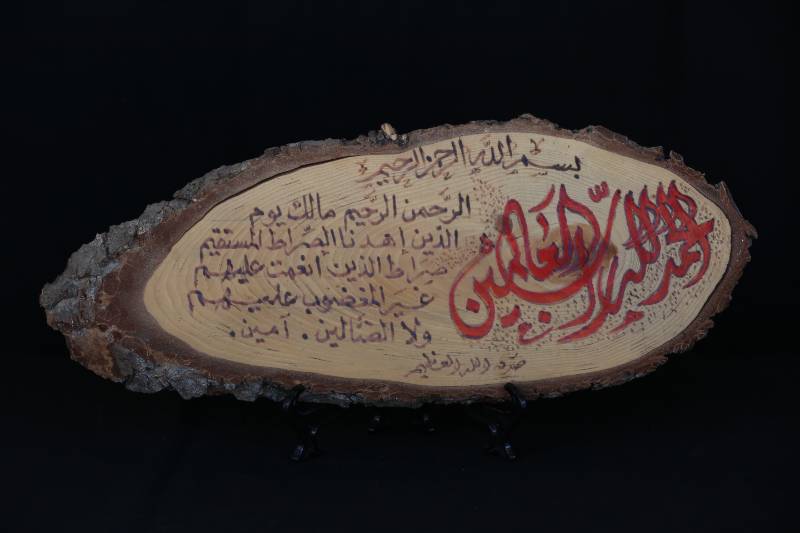 بسم الله الرحمن الرحيم
الحمد لله رب العالمين
الرَّحمن الرَّحيم مالك يوم
الذين إهدنا الصِّراط المستقيم
صراط الذين انغمت عليهم
غير المغضوب عليهم
ولا الضّالين . آمين .
صدق الله العظيم